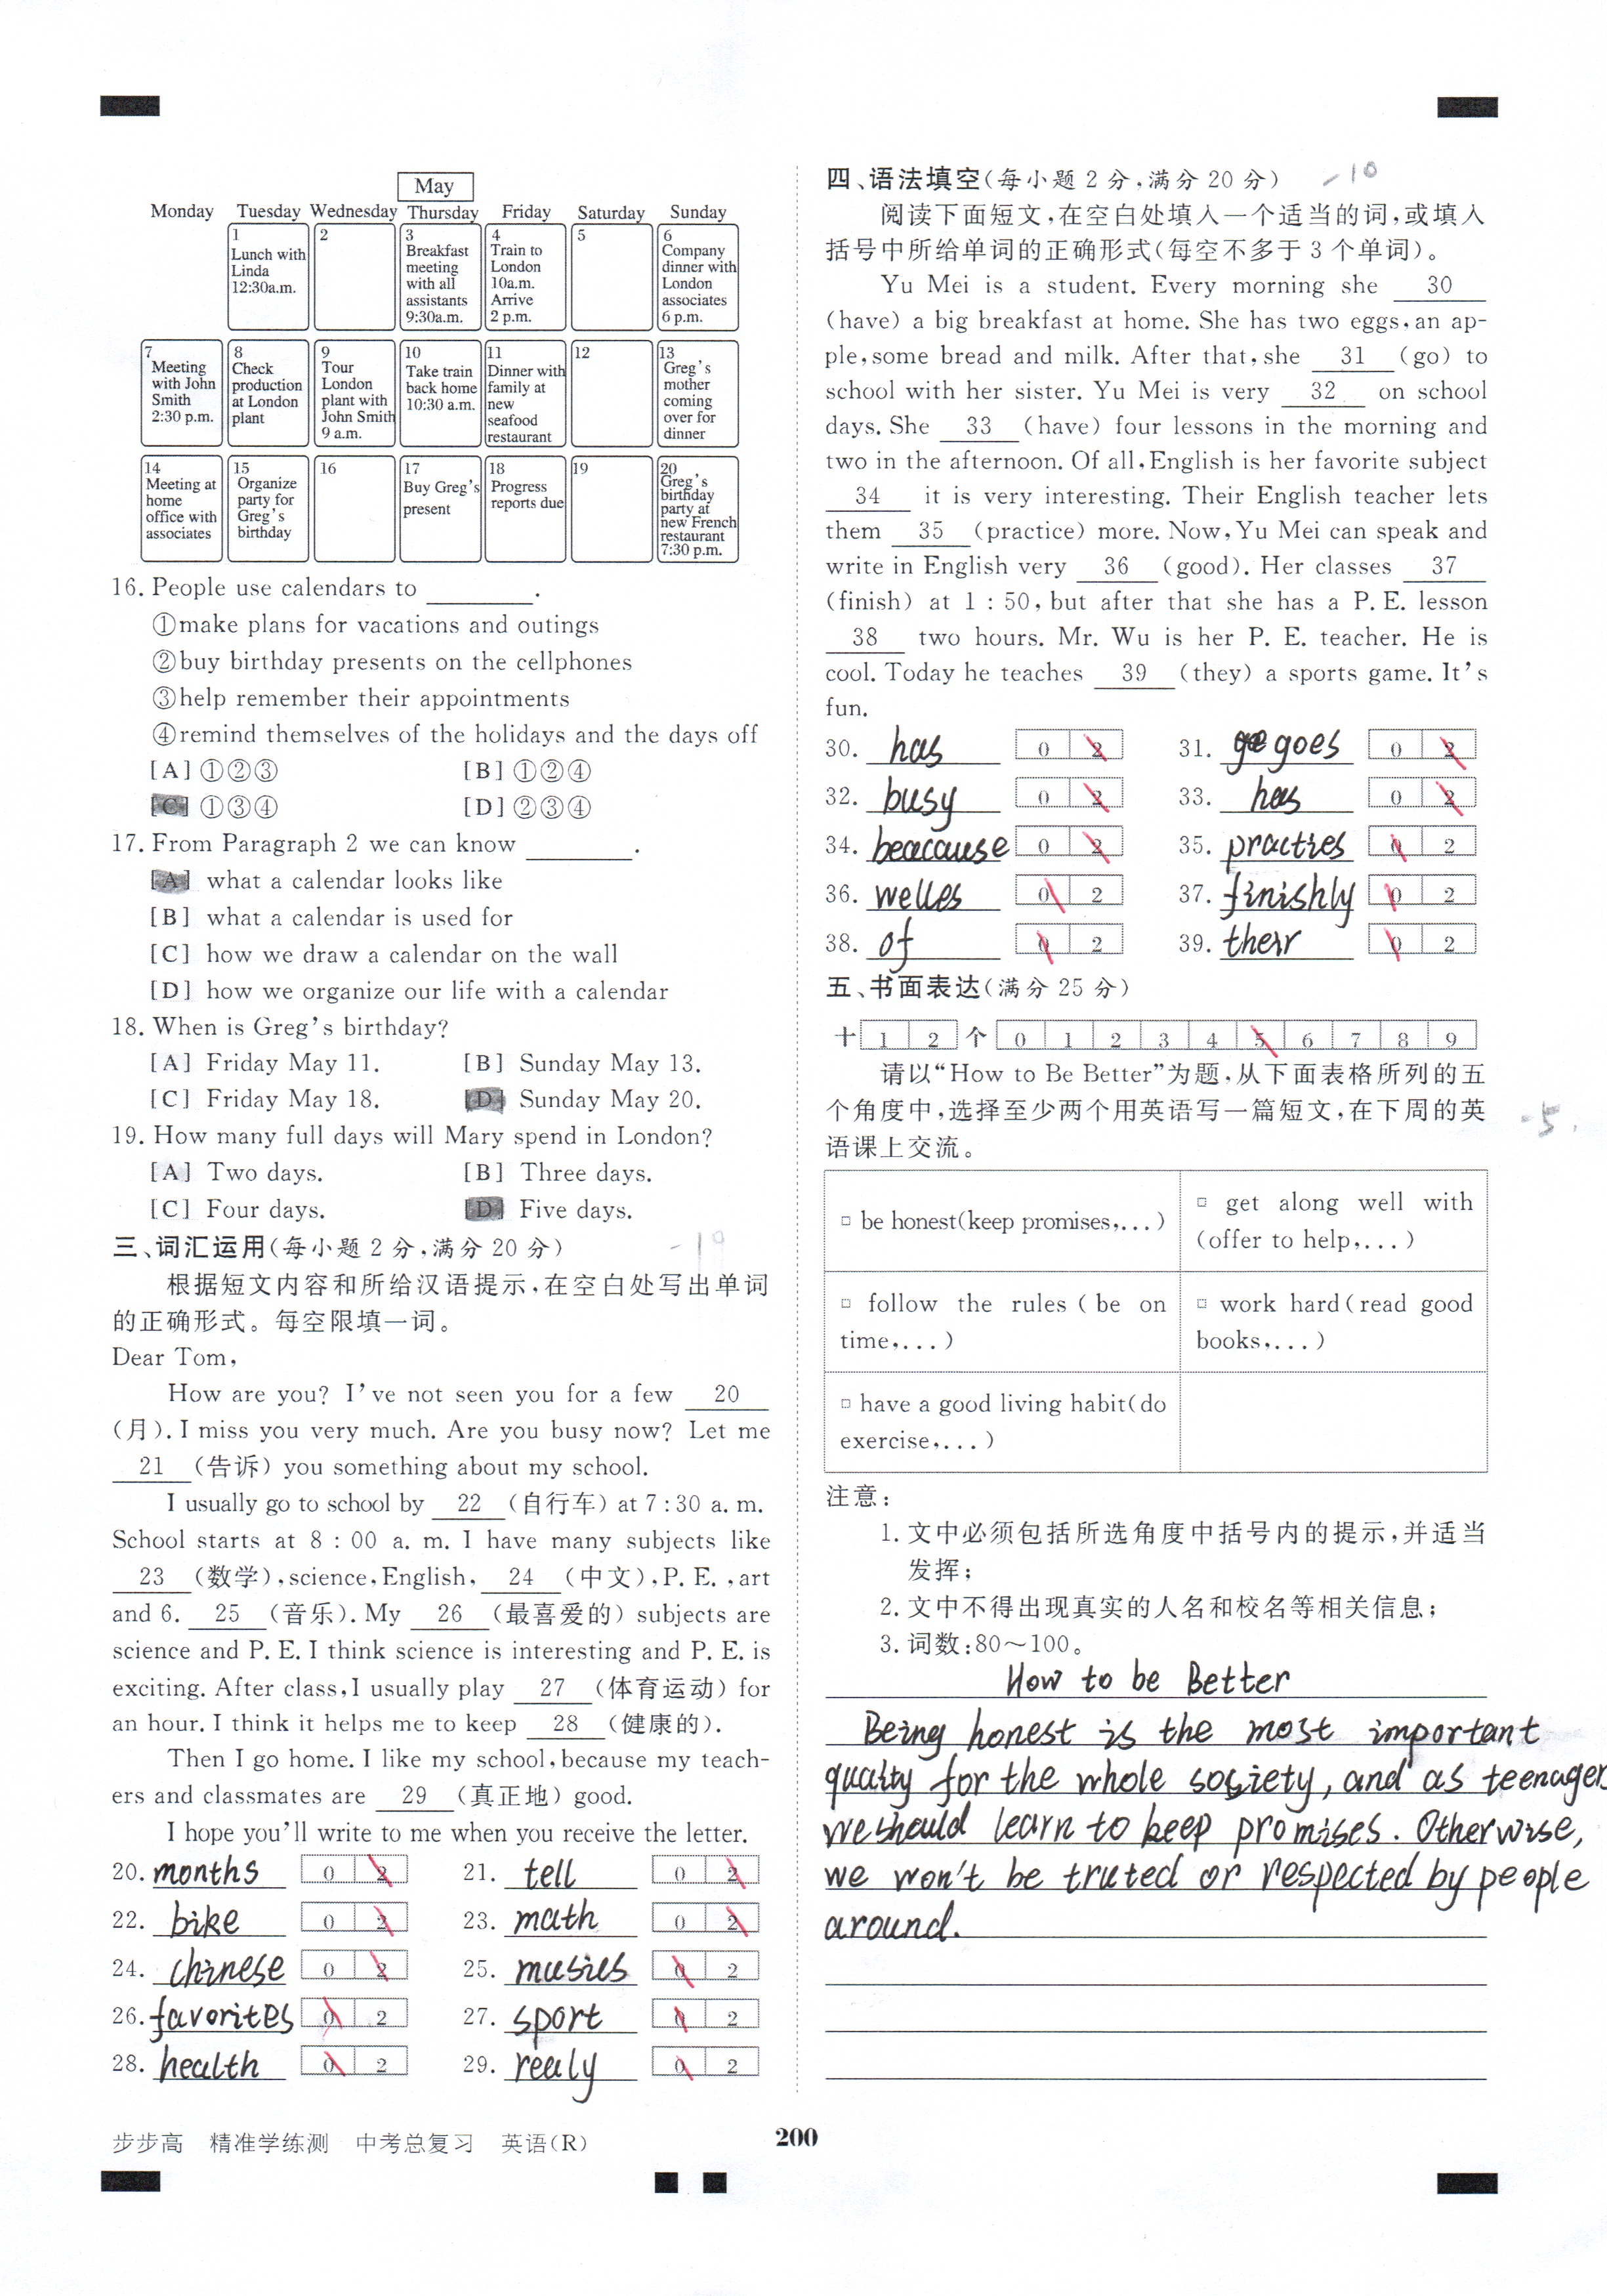 May
Monday Tuesday Wednesday Thursday Friday Saturday Sunday
1
Lunch with
Linda
12:30a.m.
2
3
Breakfast
meeting
with all
assistants
9:30a.m.
4
Train to
London
10a.m.
Arrive
2 p.m.
5
6
Company
dinner with
London
associates
6 p.m.
7
Meeting
with John
Smith
2:30 p.m.
8
Check
production
at London
plant
9
Tour
London
plant with
John Smith
9 a.m.
10
Take train
back home
10:30 a.m.
11
Dinner with
family at
new
seafood
restaurant
12
13
Greg's
mother
coming
over for
dinner
14
Meeting at
home
office with
associates
15
Organize
party for
Greg's
birthday
16
17
Buy Greg's
present
18
Progress
reports due
19
20
Greg's
birthday
party at
new French
restaurant
7:30 p.m.
16. People use calendars to ________.
①make plans for vacations and outings
②buy birthday presents on the cellphones
③help remember their appointments
④remind themselves of the holidays and the days off
[A] ①②③ [B] ①②④
[C] ①③④ [D] ②③④
17. From Paragraph 2 we can know ________.
[A] what a calendar looks like
[B] what a calendar is used for
[C] how we draw a calendar on the wall
[D] how we organize our life with a calendar
18. When is Greg's birthday?
[A] Friday May 11. [B] Sunday May 13.
[C] Friday May 18. [D] Sunday May 20.
19. How many full days will Mary spend in London?
[A] Two days. [B] Three days.
[C] Four days. [D] Five days.
三、词汇运用(每小题 2 分,满分 20 分)
根据短文内容和所给汉语提示,在空白处写出单词
的正确形式。每空限填一词。
Dear Tom,
How are you? I've not seen you for a few 20
(月). I miss you very much. Are you busy now? Let me
21 (告诉) you something about my school.
I usually go to school by 22 (自行车) at 7:30 a. m.
School starts at 8 : 00 a. m. I have many subjects like
23 (数学),science,English, 24 (中文),P. E. ,art
and 6. 25 (音乐). My 26 (最喜爱的) subjects are
science and P. E. I think science is interesting and P. E. is
exciting. After class,I usually play 27 (体育运动) for
an hour. I think it helps me to keep 28 (健康的).
Then I go home. I like my school,because my teach-
ers and classmates are 29 (真正地) good.
I hope you'll write to me when you receive the letter.
20. months 0 2 21. tell 0 2
22. bike 0 2 23. math 0 2
24. chinese 0 2 25. musics 0 2
26. favorites 0 2 27. sport 0 2
28. health 0 2 29. realy 0 2
步步高 精准学练测 中考总复习 英语(R)
200
四、语法填空(每小题 2 分,满分 20 分) -10
阅读下面短文,在空白处填入一个适当的词,或填入
括号中所给单词的正确形式(每空不多于 3 个单词)。
Yu Mei is a student. Every morning she 30
(have) a big breakfast at home. She has two eggs,an ap-
ple,some bread and milk. After that,she 31 (go) to
school with her sister. Yu Mei is very 32 on school
days. She 33 (have) four lessons in the morning and
two in the afternoon. Of all,English is her favorite subject
34 it is very interesting. Their English teacher lets
them 35 (practice) more. Now,Yu Mei can speak and
write in English very 36 (good). Her classes 37
(finish) at 1 : 50,but after that she has a P. E. lesson
38 two hours. Mr. Wu is her P. E. teacher. He is
cool. Today he teaches 39 (they) a sports game. It's
fun.
30. has 0 2 31. goes 0 2
32. busy 0 2 33. has 0 2
34. beacause 0 2 35. practies 0 2
36. welles 0 2 37. finishly 0 2
38. of 0 2 39. their 0 2
五、书面表达(满分 25 分)
十 1 2 个 0 1 2 3 4 5 6 7 8 9
请以“How to Be Better”为题,从下面表格所列的五
个角度中,选择至少两个用英语写一篇短文,在下周的英
语课上交流。
-5
□ be honest(keep promises,...)
□ get along well with
(offer to help,...)
□ follow the rules ( be on
time,...)
□ work hard(read good
books,...)
□ have a good living habit(do
exercise,...)
注意:
1. 文中必须包括所选角度中括号内的提示,并适当
发挥;
2. 文中不得出现真实的人名和校名等相关信息;
3. 词数:80～100。
How to be Better
Being honest is the most important
quality for the whole society, and as teenagers
we should learn to keep promises. Otherwise,
we won't be truted or respected by people
around.